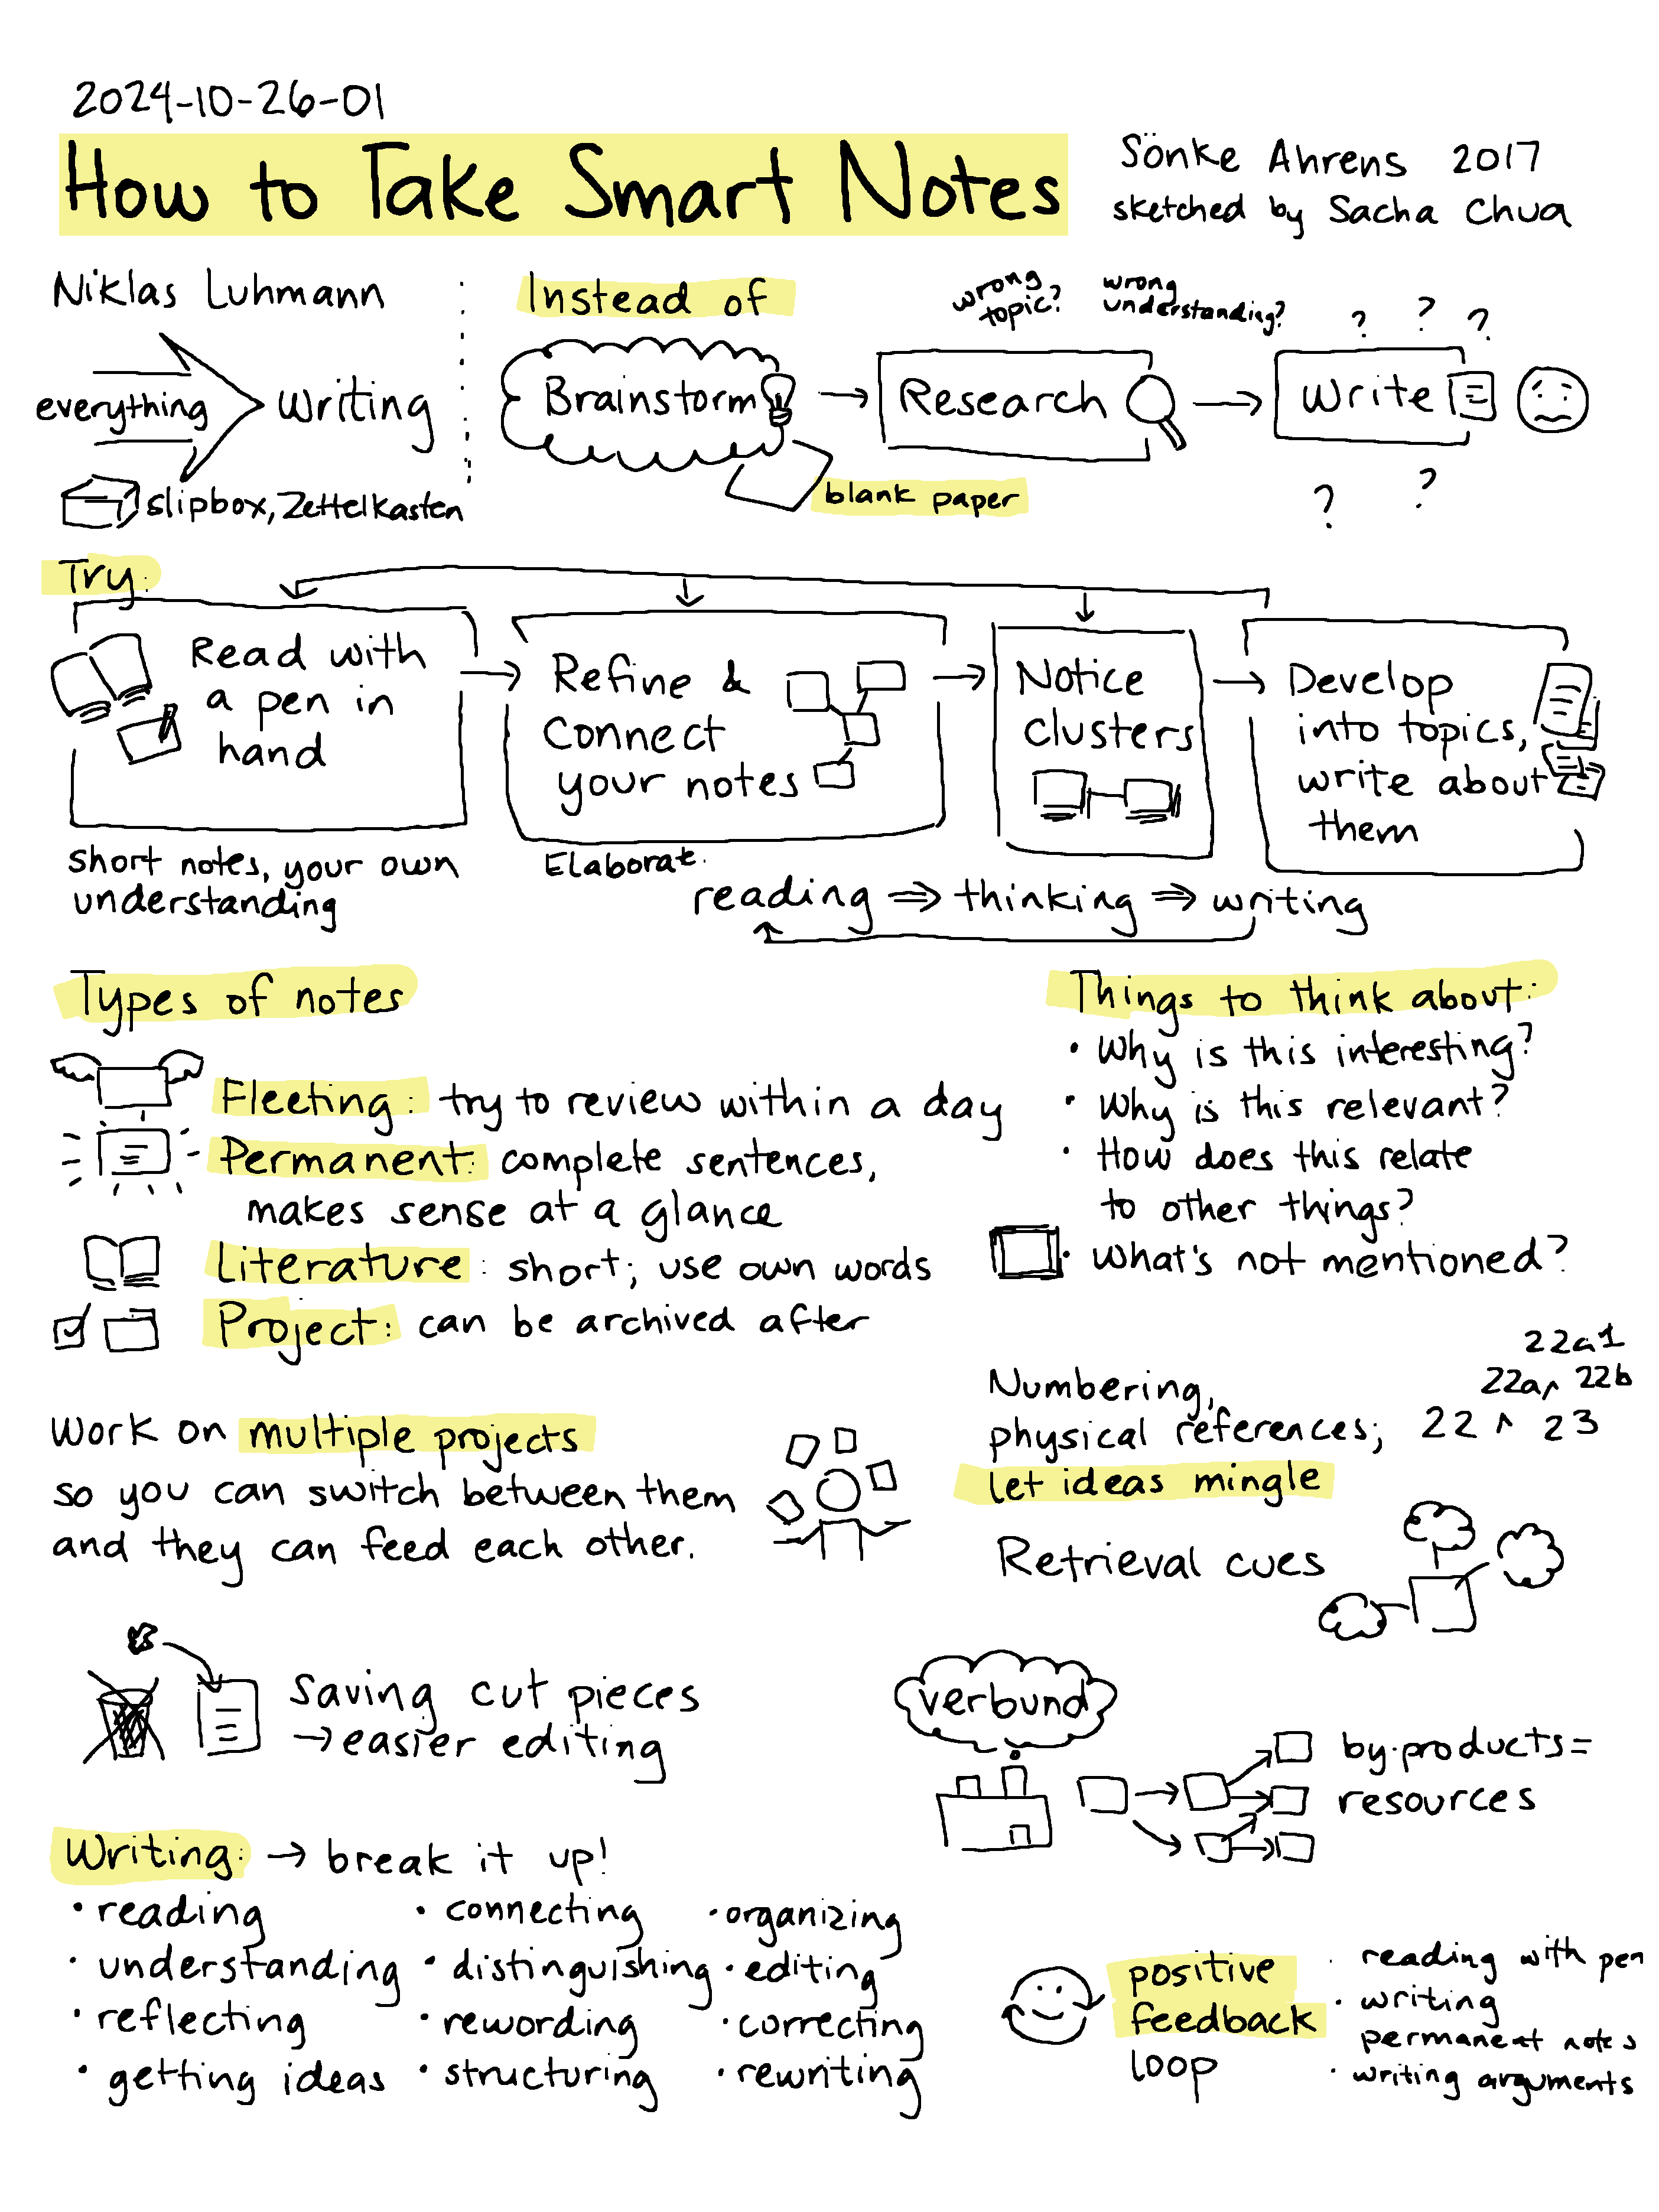 2024-10-26-01
How to Take Smart Notes
Sönke Ahrens 2017
sketched by Sacha Chua
Niklas Luhmann
everything
writing
slipbox, Zettelkasten
Instead of
Brainstorm
blank paper
wrong
topic?
Research
wrong
understanding?
? ? ?
Write
? ?
Try:
Read with
a pen in
hand
short notes, your own
understanding
Refine &
connect
your notes
Elaborate.
Notice
clusters
Develop
into topics,
write about
them
reading ⇒ thinking ⇒ writing
Types of notes
Fleeting: try to review within a day
Permanent: complete sentences,
makes sense at a glance
Literature: short; use own words
Project: can be archived after
Things to think about:
• Why is this interesting?
• Why is this relevant?
• How does this relate
to other things?
• What's not mentioned?
Work on multiple projects
so you can switch between them
and they can feed each other.
Numbering,
physical references;
let ideas mingle
22a1
22a ^ 22b
22 ^ 23
Retrieval cues
Saving cut pieces
→ easier editing
verbund
by-products =
resources
Writing: → break it up!
• reading
• understanding
• reflecting
• getting ideas
• connecting
• distinguishing
• rewording
• structuring
• organizing
• editing
• correcting
• rewriting
positive
feedback
loop
• reading with pen
• writing
permanent notes
• writing arguments